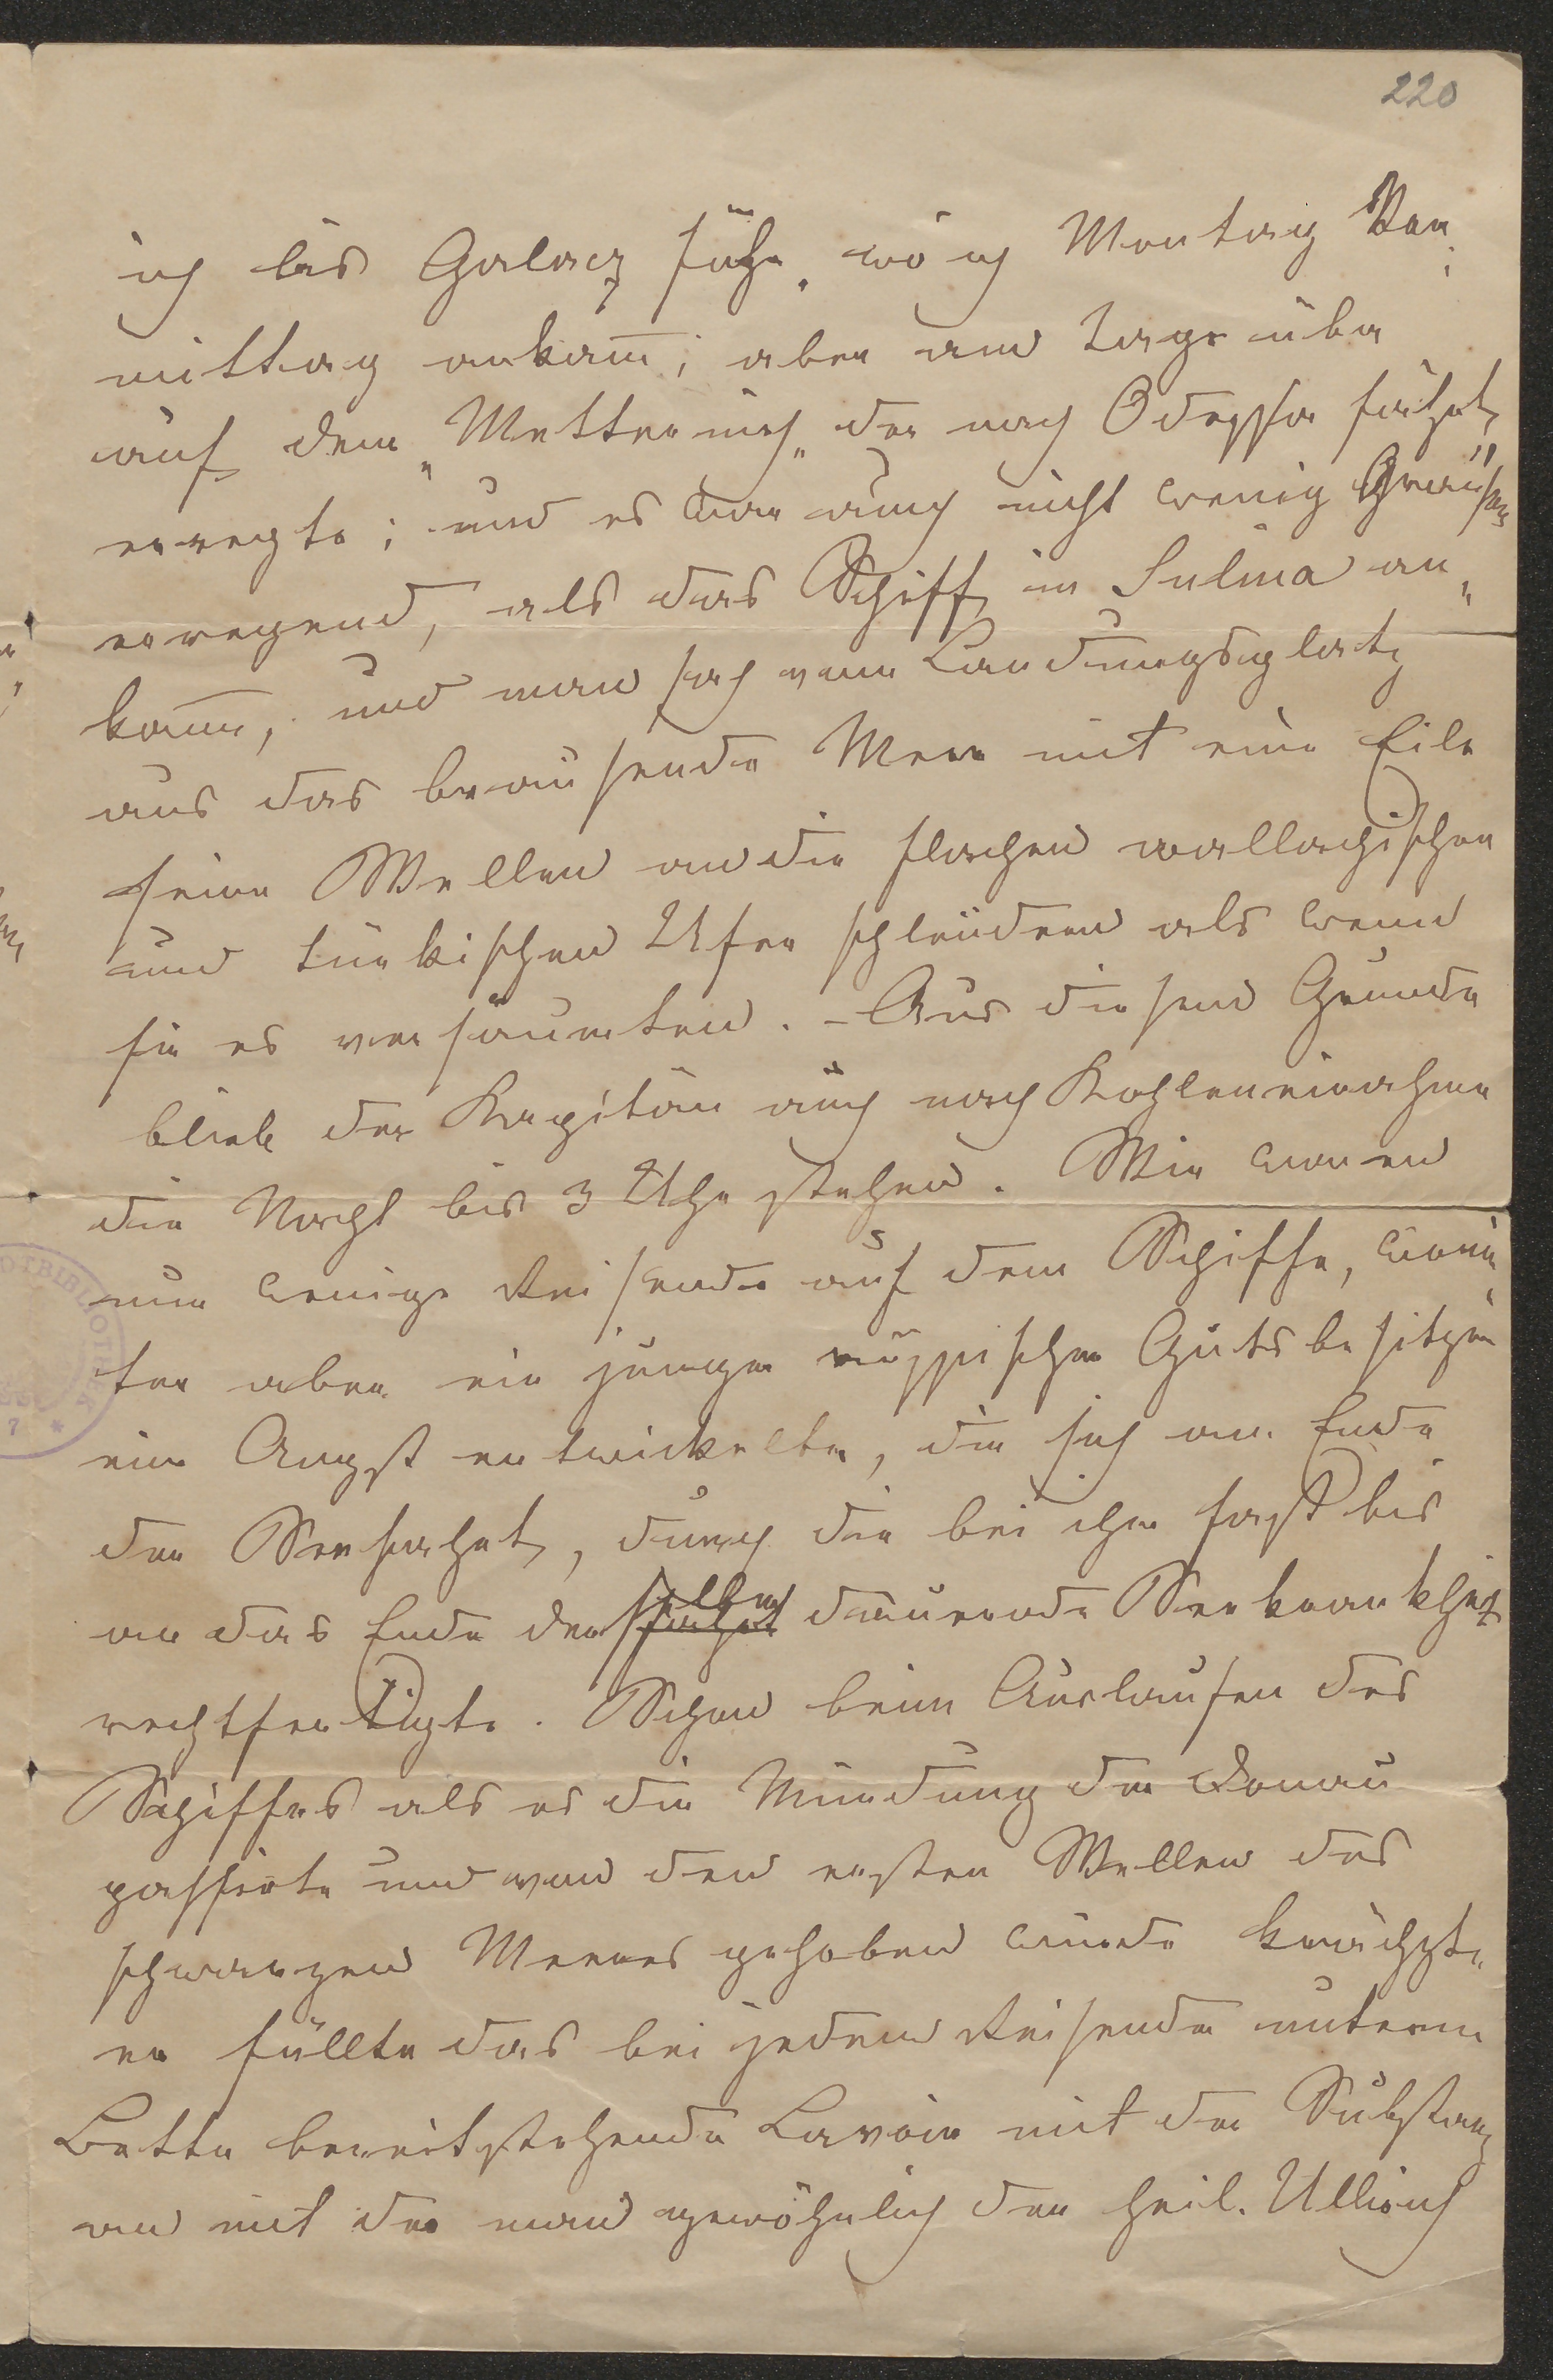 220
ich bis Galacz fuhr, wo ich Montag Vor-
mittag ankam̅; aber am Tage über
auf dem „Metternich„ der nach Odessa fährt,
erregte; und es war auch nicht wenig Grausen
erregend, als das Schiff in Sulina an„
kam̅, und man sah vom Landungsplatz
aus das brausende Meer mit einer Eile
seine Wellen an die flachen wallachischen
und türkischen Ufer schleudern als wenn
sie es versäumten. – Aus diesem Grunde
blieb der Kapitän auch nach Kohleneinahme
die Nacht bis 3 Uhr stehen. Wir waren
nur wenige Reisende auf dem Schiffe, worun„
ter aber ein junger russischer Gutsbesitzer
eine Angst entwickelte, die sich am Ende
der Seefahrt, durch die bei ihm fast bis
an das Ende derselben dauernde Seekrankheit
rechtfertigte. Schon beim Auslaufen des
Schiffes als es die Mündung der Donau
passirte und von den ersten Wellen des
schwarzen Meeres gehoben wurde krächzte„
er füllte das bei jedem Reisenden unterm
Bette bereitstehende Lavoir mit der Substanz
an mit der man gewöhnlich den heil. Ullrich